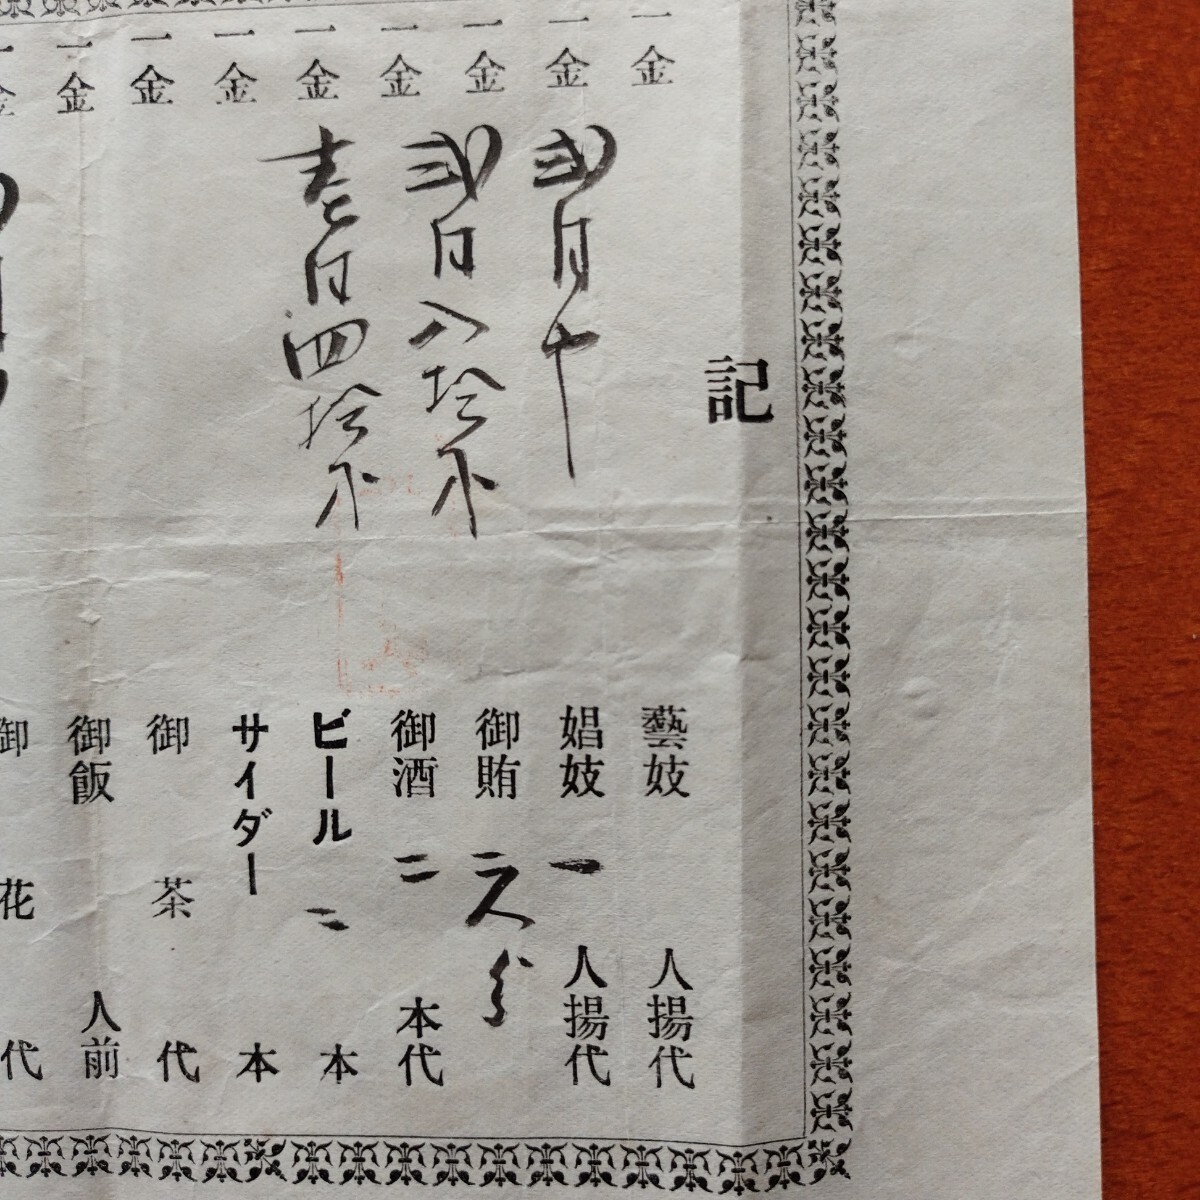 記
一金 藝妓 人揚代
一金 弐円也 娼妓 一 人揚代
一金 弐円八拾銭 御賄 二人分
一金 御酒 二 本代
一金 壱円四拾銭 ビール 二 本
一金 サイダー 本
一金 御茶代
一金 御飯 人前
一金 御花代